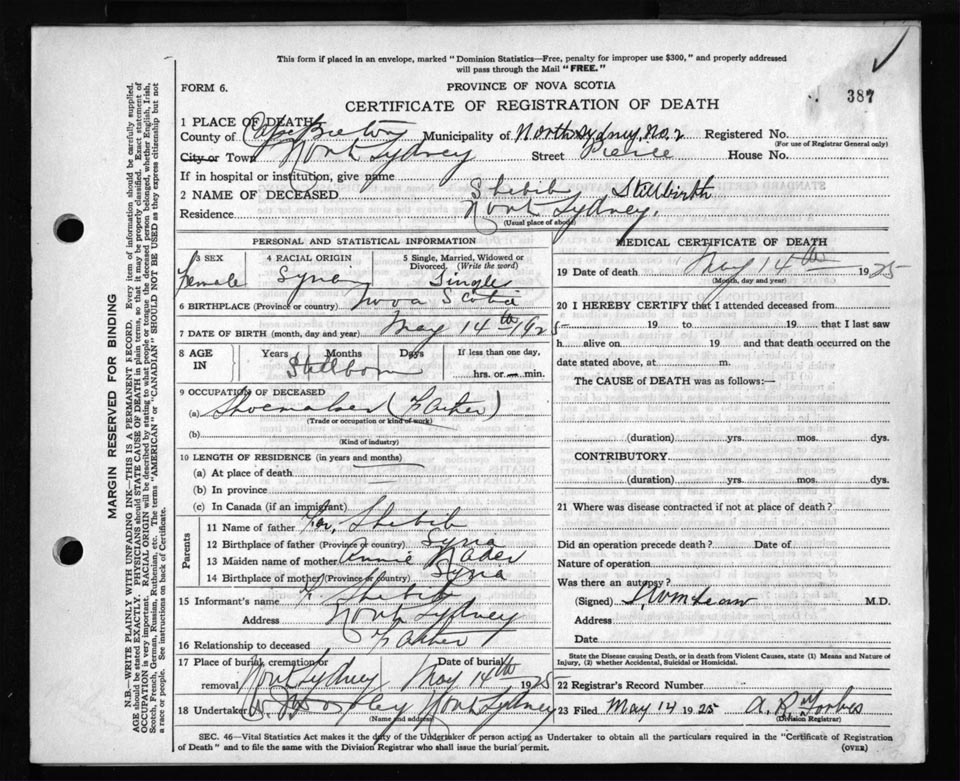 This form if placed in an envelope, marked "Dominion Statistics—Free, penalty for improper use $300," and properly addressed
will pass through the Mail "FREE."
FORM 6.
PROVINCE OF NOVA SCOTIA
387
CERTIFICATE OF REGISTRATION OF DEATH
1 PLACE OF DEATH
County of Cape Breton Municipality of North Sydney, No. 2 Registered No.
(For use of Registrar General only)
City or Town North Sydney Street Pierce House No.
If in hospital or institution, give name
2 NAME OF DECEASED Shebib Stillbirth
Residence North Sydney.
(Usual place of abode)
PERSONAL AND STATISTICAL INFORMATION
3 SEX 4 RACIAL ORIGIN 5 Single, Married, Widowed or Divorced. (Write the word)
Female Syria Single
6 BIRTHPLACE (Province or country) Nova Scotia
7 DATE OF BIRTH (month, day and year) May 14th 1925
8 AGE IN Years Months Days If less than one day,
Stillborn hrs. or min.
9 OCCUPATION OF DECEASED
(a) Shoemaker (Father)
(Trade or occupation or kind of work)
(b)
(Kind of industry)
10 LENGTH OF RESIDENCE (in years and months)
(a) At place of death
(b) In province
(c) In Canada (if an immigrant)
Parents
11 Name of father Shebib
12 Birthplace of father (Province or country) Syria
13 Maiden name of mother Annie Nader
14 Birthplace of mother (Province or country) Syria
15 Informant's name Shebib
Address North Sydney
16 Relationship to deceased Father
17 Place of burial, cremation or Date of burial
removal North Sydney May 14th 1925
18 Undertaker North Sydney
(Name and address)
MEDICAL CERTIFICATE OF DEATH
19 Date of death May 14th 1925
(Month, day and year)
20 I HEREBY CERTIFY that I attended deceased from
19 to 19 that I last saw
h alive on 19 and that death occurred on the
date stated above, at m.
The CAUSE of DEATH was as follows:—
(duration) yrs. mos. dys.
CONTRIBUTORY
(duration) yrs. mos. dys.
21 Where was disease contracted if not at place of death?
Did an operation precede death? Date of
Nature of operation
Was there an autopsy?
(Signed) M.D.
Address
Date
State the Disease causing Death, or in death from Violent Causes, state (1) Means and Nature of
Injury, (2) whether Accidental, Suicidal or Homicidal.
22 Registrar's Record Number
23 Filed May 14 1925 A. R. Forbes
(Division Registrar)
SEC. 46—Vital Statistics Act makes it the duty of the Undertaker or person acting as Undertaker to obtain all the particulars required in the "Certificate of Registration
of Death" and to file the same with the Division Registrar who shall issue the burial permit.
(OVER)
MARGIN RESERVED FOR BINDING
N.B.—WRITE PLAINLY WITH UNFADING INK—THIS IS A PERMANENT RECORD. Every item of information should be carefully supplied.
AGE should be stated EXACTLY. PHYSICIANS should STATE CAUSE OF DEATH in plain terms, so that it may be properly classified. Exact statement of
OCCUPATION is very important. RACIAL ORIGIN will be described by stating to what people or tongue the deceased person belonged, whether English, Irish,
Scotch, French, German, Russian, Ruthenian, etc. The terms "AMERICAN" or "CANADIAN" SHOULD NOT BE USED as they express citizenship but not
a race or people. See instructions on back of Certificate.